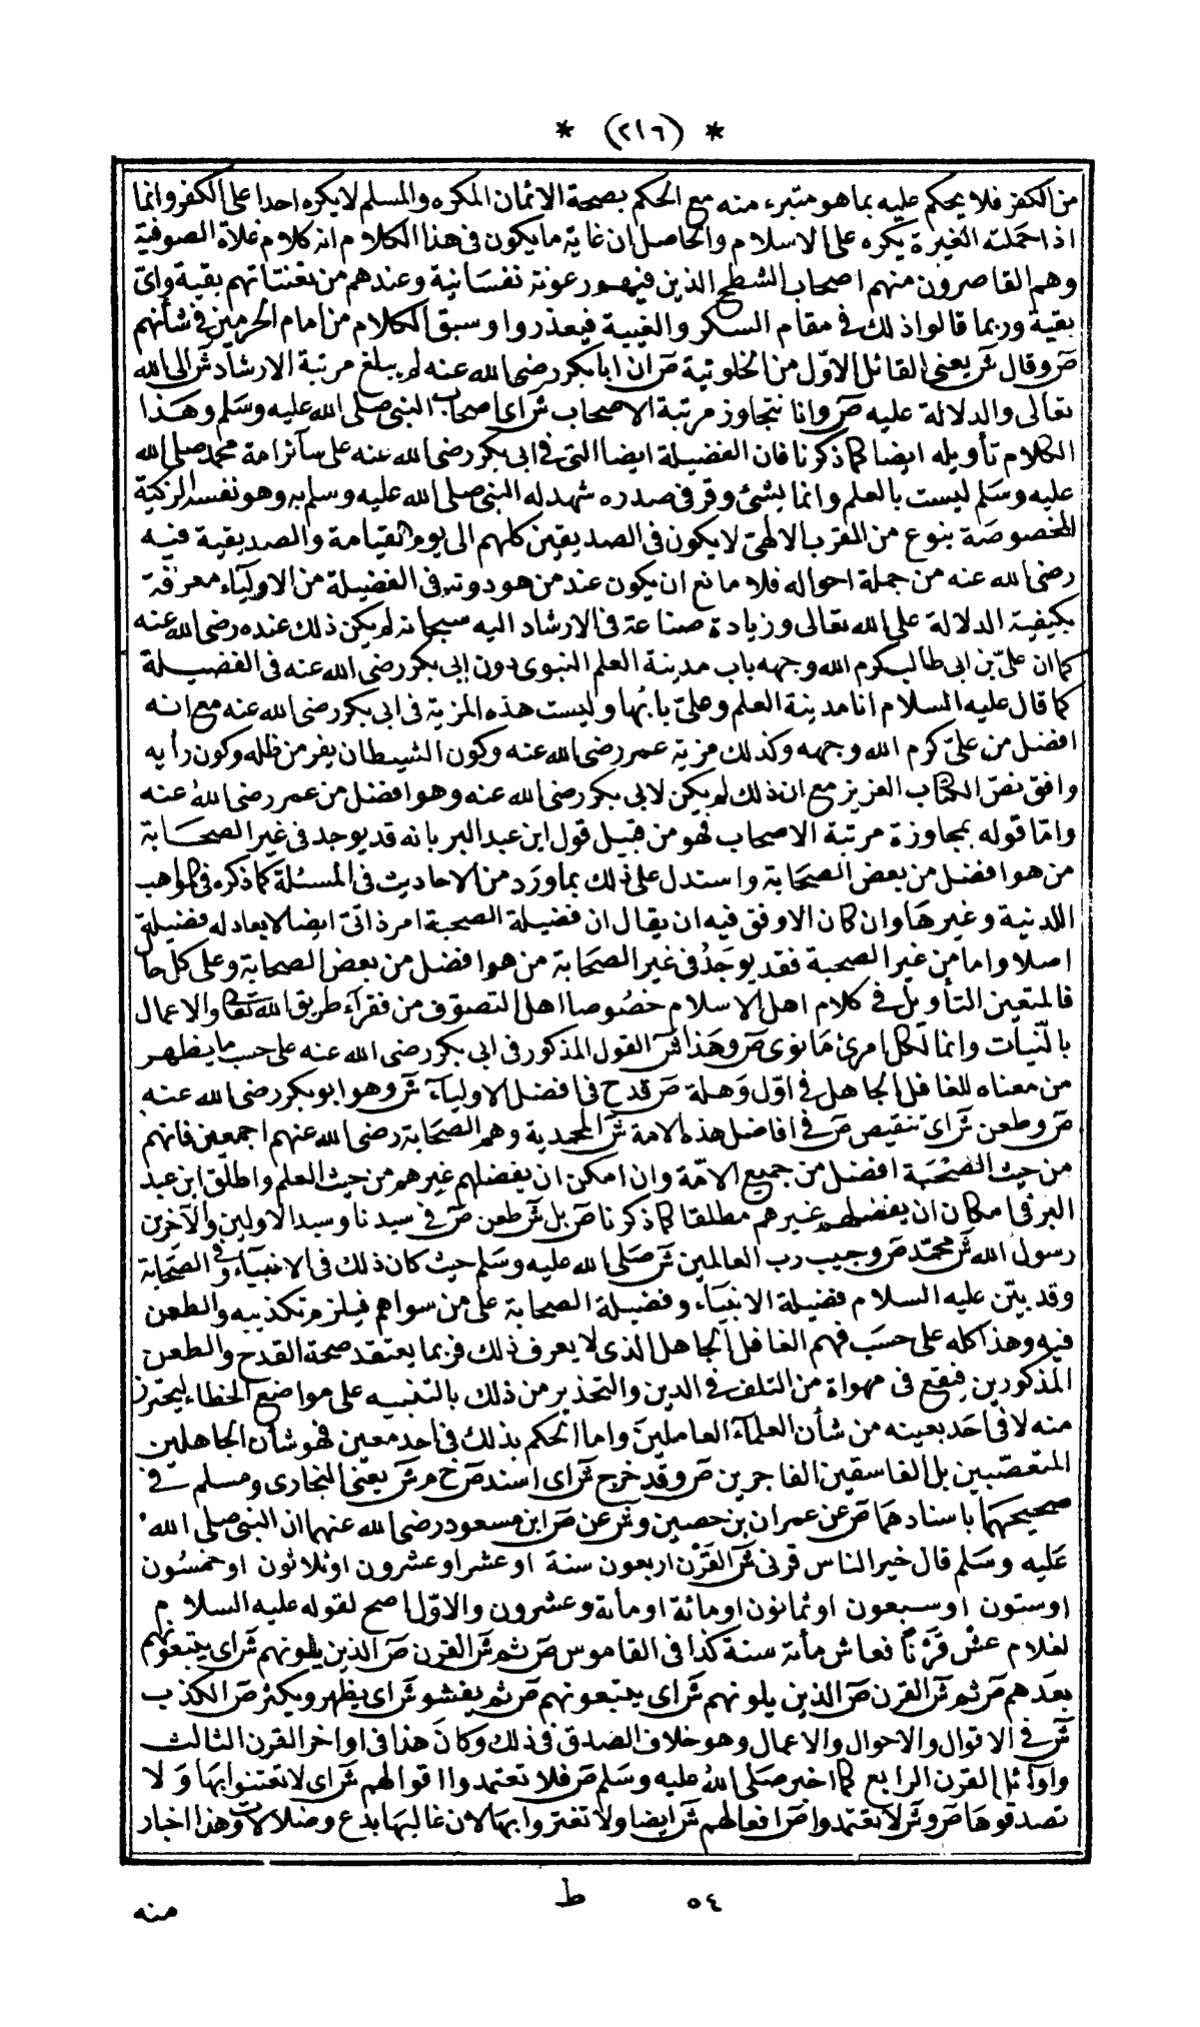 * (٢١٦) *
من الكفر فلا يحكم عليه بما هو متبرء منه مع الحكم بصحة الايمان المكره والمسلم لا يكره احدا على الكفر وانما
اذا حملته الغيرة يكره على الاسلام والحاصل ان غاية ما يكون فى هذا الكلام انه كلام غلاة الصوفية
وهم القاصرون منهم اصحاب الشطح الذين فيهم رعونة نفسانية وعندهم من تعنتاتهم بقية واىّ
بقية وربما قالوا ذلك فى مقام السكر والغيبة فيعذروا وسبق الكلام من امام الحرمين فى شأنهم
ص وقال ش يعنى القائل الاوّل من الخلوتية ص ان ابا بكر رضى الله عنه لم يبلغ مرتبة الارشاد ش الى الله
تعالى والدلالة عليه ص وانا نتجاوز مرتبة الاصحاب ش اى اصحاب النبى صلى الله عليه وسلم وهذا
الكلام تأويله ايضا كما ذكرنا فان الفضيلة ايضا التى فى ابى بكر رضى الله عنه على سآئر امة محمد صلى الله
عليه وسلم ليست بالعلم وانما بشئ وقر فى صدره شهد له النبى صلى الله عليه وسلم به وهو نفسه الزكية
المخصوصة بنوع من القرب الالهىّ لا يكون فى الصديقين كلهم الى يوم القيامة والصديقية فيه
رضى الله عنه من جملة احواله فلا مانع ان يكون عند من هو دونه فى الفضيلة من الاوليآء معرفة
بكيفية الدلالة على الله تعالى وزيادة صناعة فى الارشاد اليه سبحانه لم يكن ذلك عنده رضى الله عنه
كما ان علىّ بن ابى طالب كرم الله وجهه باب مدينة العلم النبوى دون ابى بكر رضى الله عنه فى الفضيلة
كما قال عليه السلام انا مدينة العلم وعلىّ بابها وليست هذه المزية فى ابى بكر رضى الله عنه مع انه
افضل من علىّ كرم الله وجهه وكذلك مزية عمر رضى الله عنه وكون الشيطان يفر من ظله وكون رأيه
وافق نصّ الكتاب العزيز مع ان ذلك لم يكن لابى بكر رضى الله عنه وهو افضل من عمر رضى الله عنه
وامّا قوله بمجاوزة مرتبة الاصحاب فهو من قبيل قول ابن عبد البر بانه قد يوجد فى غير الصحابة
من هو افضل من بعض الصحابة واستدل على ذلك بما ورد من الاحاديث فى المسئلة كما ذكره فى المواهب
اللدنية وغيرها وان كان الاوفق فيه ان يقال ان فضيلة الصحبة امر ذاتىّ ايضا لا يعادله فضيلة
اصلا واما من غير الصحبة فقد يوجد فى غير الصحابة من هو افضل من بعض الصحابة وعلى كل حال
فالمتعين التأويل فى كلام اهل الاسلام خصوصا اهل التصوّف من فقرآء طريق الله تعالى والاعمال
بالنيات وانما لكل امرئ ما نوى ص وهذا ش القول المذكور فى ابى بكر رضى الله عنه على حسب ما يظهر
من معناه للغافل الجاهل فى اوّل وهلة ص قدح فى افضل الاوليآء ش وهو ابو بكر رضى الله عنه
ص وطعن ش اى تنقيص ص فى افاضل هذه الامة ش المحمدية وهم الصحابة رضى الله عنهم اجمعين فانهم
من حيث الصحبة افضل من جميع الامّة وان امكن ان يفضلهم غيرهم من حيث العلم واطلق ابن عبد
البر فى امكان ان يفضلهم غيرهم مطلقا كما ذكرنا ص بل ش طعن ص فى سيدنا وسيد الاولين والآخرين
رسول الله ش محمّد ص وحبيب رب العالمين ش صلى الله عليه وسلم حيث كان ذلك فى الانبيآء وفى الصحابة
وقد بيّن عليه السلام فضيلة الانبيآء وفضيلة الصحابة على من سواهم فيلزم تكذيبه والطعن
فيه وهذا كله على حسب فهم الغافل الجاهل الذى لا يعرف ذلك فربما يعتقد صحة القدح والطعن
المذكورين فيقع فى مهواة من التلف فى الدين والتحذير من ذلك بالتنبيه على مواضع الخطاء ليحترز
منه لا فى احد بعينه من شأن العلمآء العاملين واما الحكم بذلك فى احد معين فهو شأن الجاهلين
المتعصّبين بل الفاسقين الفاجرين ص وقد خرج ش اى اسند ص خ م ش يعنى البخارى ومسلم فى
صحيحيهما باسنادهما ص عن عمران بن حصين و ش عن ص ابن مسعود رضى الله عنهما ان النبى صلى الله
عليه وسلم قال خير الناس قرنى ش القرن اربعون سنة او عشر او عشرون او ثلاثون او خمسون
او ستون او سبعون او ثمانون او مائة او مأة وعشرون والاوّل اصح لقوله عليه السلام
لغلام عش قرنا فعاش مأة سنة كذا فى القاموس ص ثم ش القرن ص الذين يلونهم ش اى يتبعونهم
بعدهم ص ثم ش القرن ص الذين يلونهم ش اى يتبعونهم ص ثم يفشو ش اى يظهر ويكثر ص الكذب
ش فى الاقوال والاحوال والاعمال وهو خلاف الصدق فى ذلك وكان هذا فى اواخر القرن الثالث
واوآئل القرن الرابع كما اخبر صلى الله عليه وسلم ص فلا تعتمدوا اقوالهم ش اى لا تعتنوا بها ولا
تصدقوها ص و ش لا تعتمدوا ص افعالهم ش ايضا ولا تغتروا بها لان غالبها بدع وضلالات وهذا اخبار
٥٤ ط منه